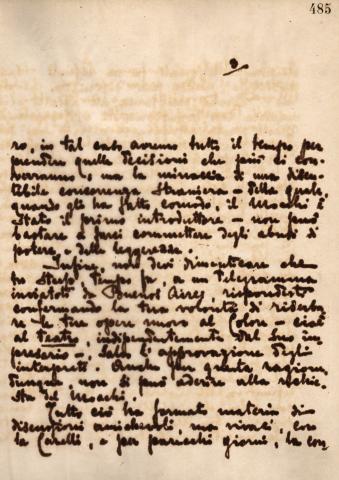 485
3
ro, in tal caso avremo tutto il tempo per
prendere quelle decisioni che più ci con-
verranno; ma la minaccia di una discu-
tibile concorrenza straniera - della quale,
quando gli ha fatto comodo, il Mocchi è
stato il primo introduttore - non può
bastare a farci commettere degli abusi di
potere, o delle leggerezze.
Infine, non devi dimenticare che
tu stesso, tempo fa, a un telegramma
inviatoti da Buenos Aires, rispondesti
confermando la tua volontà di riserba-
re le tue opere nuove al Colon - cioè
al teatro, indipendentemente dal suo im-
presario -, salvo l'approvazione degli
interpreti. Anche per questa ragione,
dunque, non si può aderire alla richie-
sta del Mocchi.
Tutto ciò ha formato materia di
discussioni amichevoli, ma vivaci, con
la Carelli, e per parecchi giorni, la con-